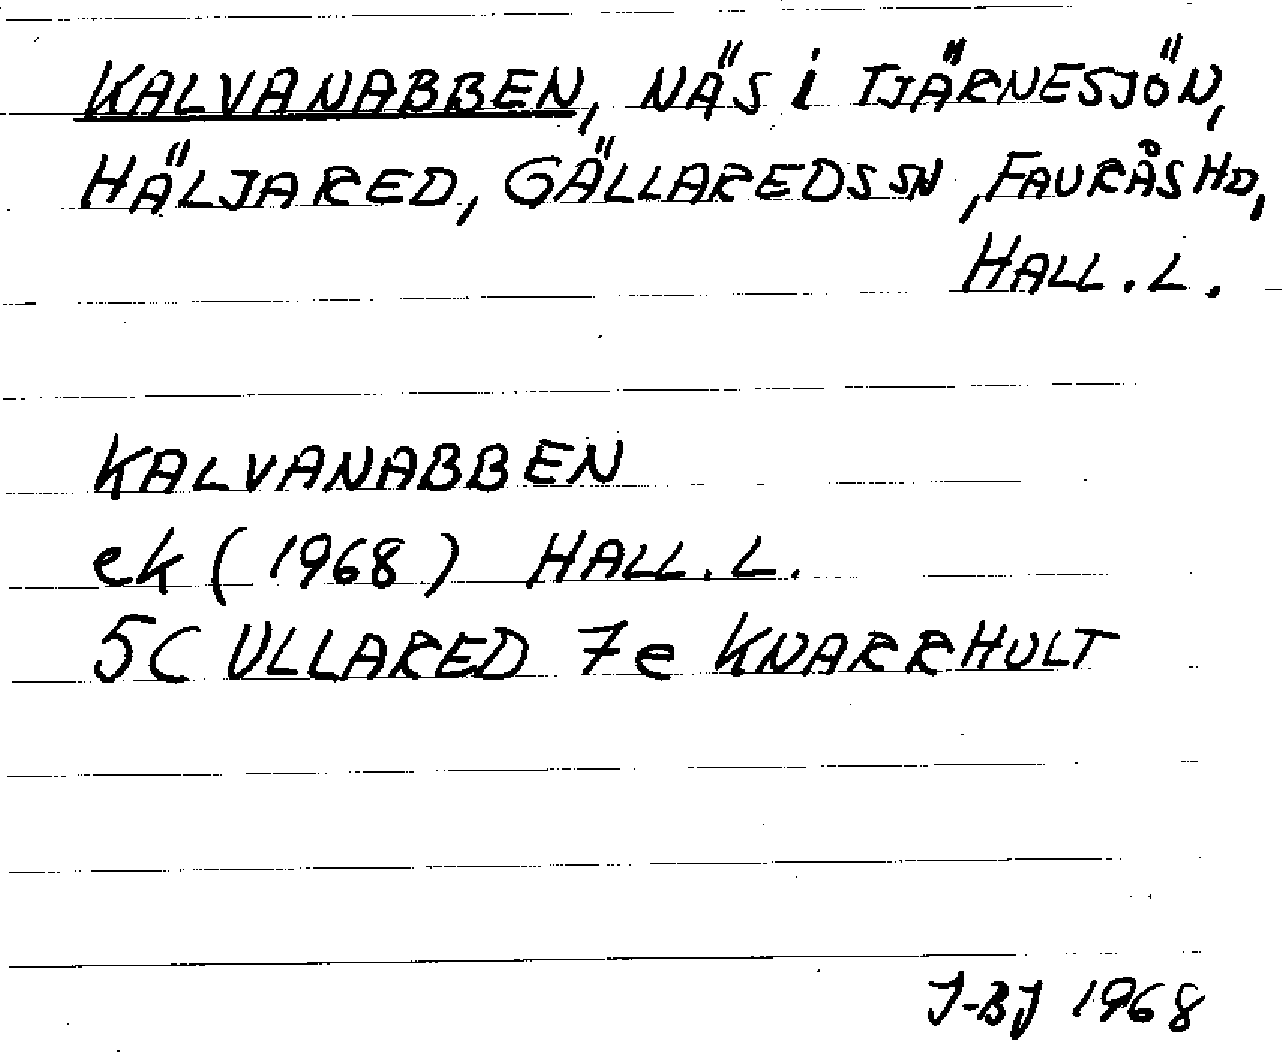 KALVANABBEN, NÄS i TJÄRNESJÖN,
HÄLJARED, GÄLLAREDS SN, FAURÅS HD,
HALL. L.
KALVANABBEN
ek (1968) HALL. L.
5C ULLARED 7e KNARRHULT
J-BJ 1968